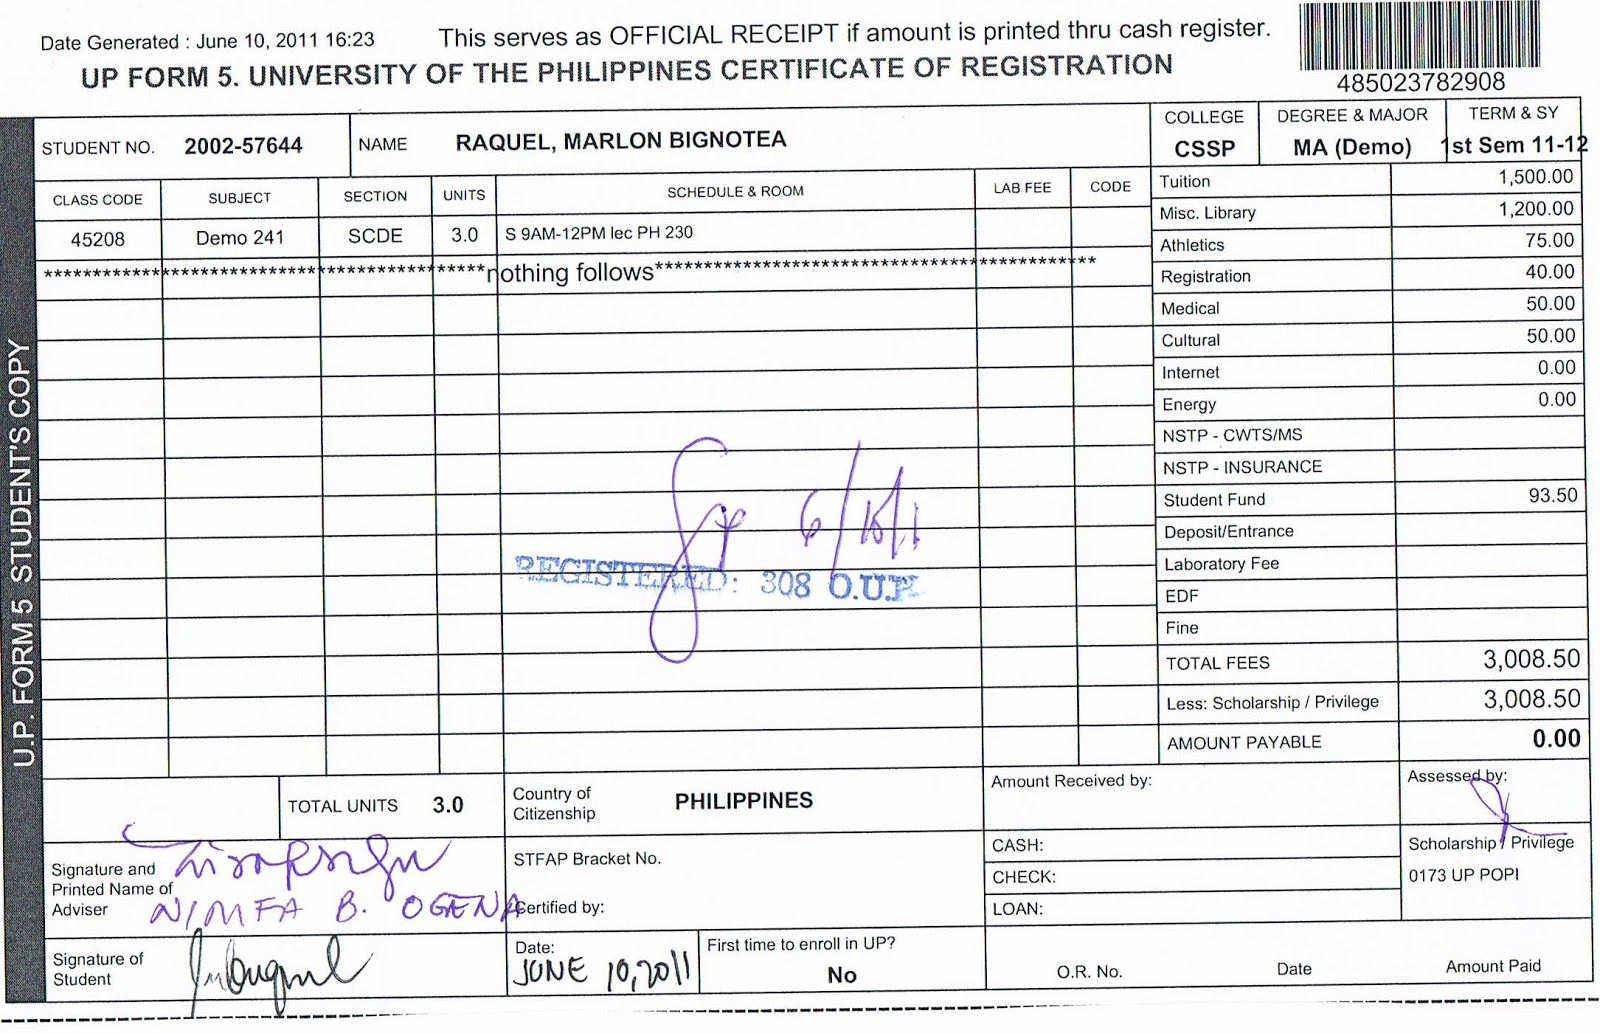 Date Generated : June 10, 2011 16:23
This serves as OFFICIAL RECEIPT if amount is printed thru cash register.
UP FORM 5. UNIVERSITY OF THE PHILIPPINES CERTIFICATE OF REGISTRATION
485023782908
U.P. FORM 5 STUDENT'S COPY
STUDENT NO. 2002-57644 NAME RAQUEL, MARLON BIGNOTEA
COLLEGE DEGREE & MAJOR TERM & SY
CSSP MA (Demo) 1st Sem 11-12
CLASS CODE SUBJECT SECTION UNITS SCHEDULE & ROOM LAB FEE CODE
45208 Demo 241 SCDE 3.0 S 9AM-12PM lec PH 230
*********************************************nothing follows*********************************************
6/10/11
REGISTERED: 308 O.U.R.
Tuition 1,500.00
Misc. Library 1,200.00
Athletics 75.00
Registration 40.00
Medical 50.00
Cultural 50.00
Internet 0.00
Energy 0.00
NSTP - CWTS/MS
NSTP - INSURANCE
Student Fund 93.50
Deposit/Entrance
Laboratory Fee
EDF
Fine
TOTAL FEES 3,008.50
Less: Scholarship / Privilege 3,008.50
AMOUNT PAYABLE 0.00
TOTAL UNITS 3.0
Country of
Citizenship
PHILIPPINES
Amount Received by:
Assessed by:
Signature and
Printed Name of
Adviser
NIMFA B. OGENA
STFAP Bracket No.
Certified by:
CASH:
CHECK:
LOAN:
Scholarship / Privilege
0173 UP POPI
Signature of
Student
Date:
JUNE 10, 2011
First time to enroll in UP?
No
O.R. No. Date Amount Paid